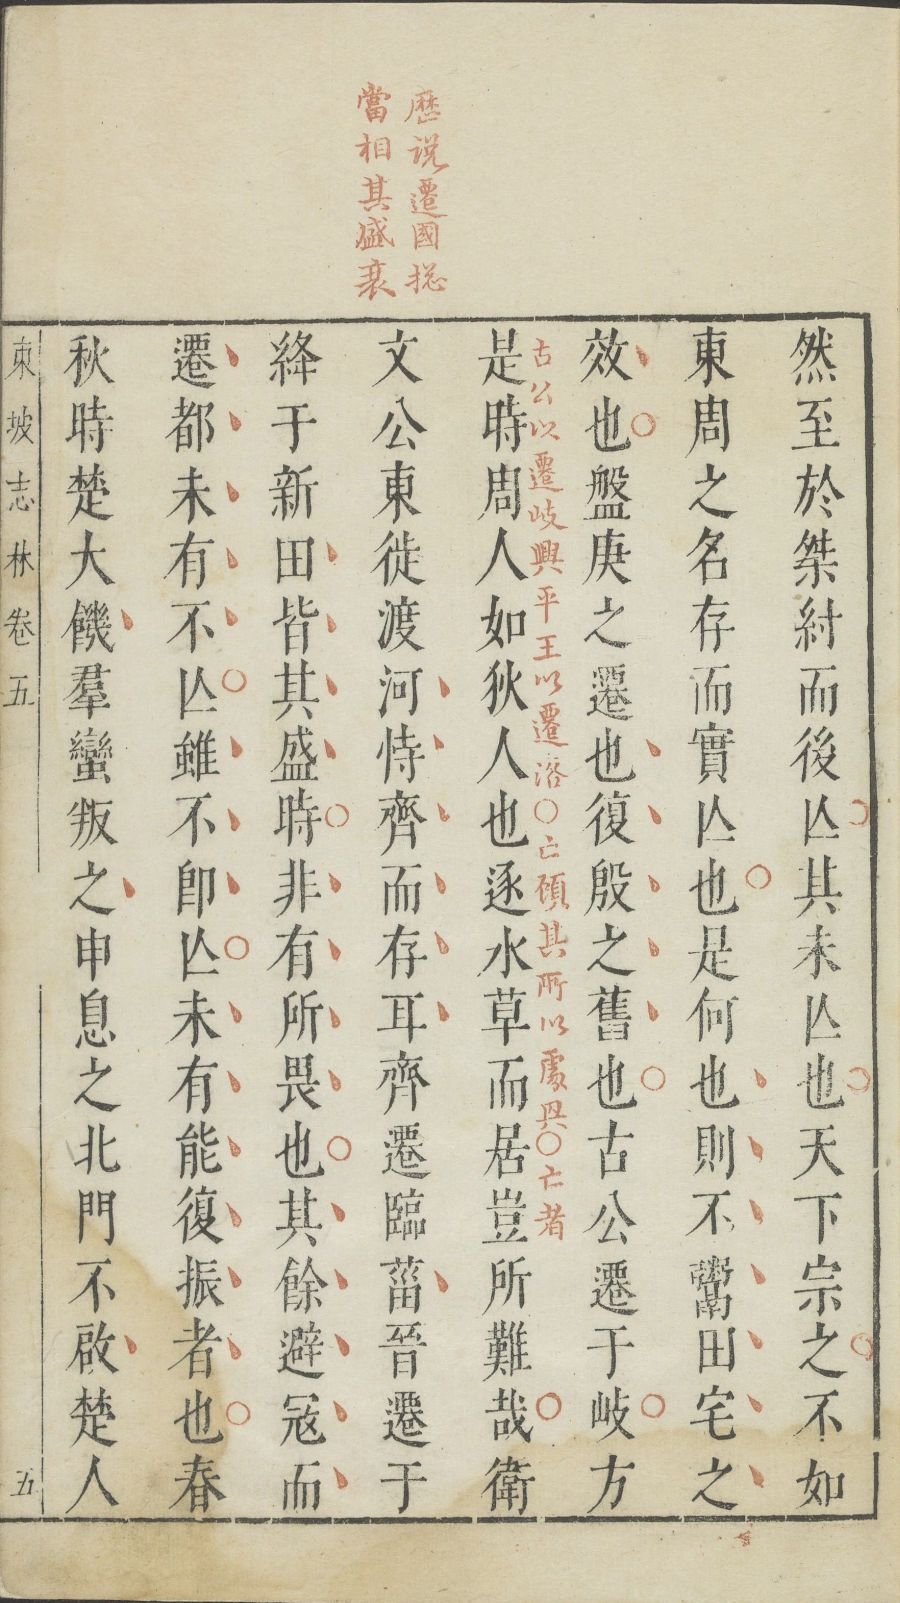 歷説遷國揔
當相其盛衰
然至於桀紂而後亾其未亾也天下宗之不如
東周之名存而實亾也是何也則不鬻田宅之
效也盤庚之遷也復殷之舊也古公遷于岐方
古公以遷岐興平王以遷洛亡碩其所以處興亡者
是時周人如狄人也逐水草而居豈所難哉衛
文公東徙渡河恃齊而存耳齊遷臨菑晉遷于
絳于新田皆其盛時非有所畏也其餘避冦而
遷都未有不亾雖不卽亾未有能復振者也春
秋時楚大饑羣蠻叛之申息之北門不啟楚人
東坡志林卷五
五